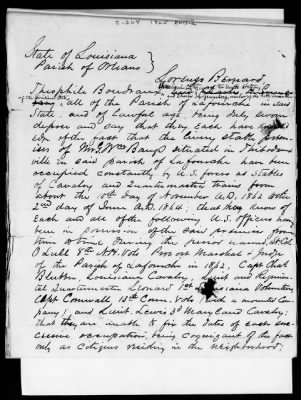 State of Louisiana }
Parish of Orleans }
Lorenzo Bernard,
Theophile Boudreaux,
all of the Parish of Lafourche in said
State, and of lawful age, being duly sworn
depose and say that they each have
of the fact that the livery stable prem-
ises of Mrs. Baugh situated in Thibodeaux-
ville in said parish of Lafourche have been
occupied constantly by U.S. forces as Stables
of Cavalry and Quartermaster trains from
about the 10th day of November A.D. 1862 to the
2nd day of June A.D. 1864; that they know of
Each and all of the following U.S. Officers have
been in possession of the said premises from
time to time during the period named,
O. Lull 8th N.H. Vols Provost Marshal & Judge
of the Parish of Lafourche in 1862, Capt
Louisiana Cavalry,
tal Quartermaster Leonard 1st Louisiana Volunteers
Capt Cornwall 13th Conn. Vols (with a mounted Com-
pany) and Lieut. Lewis 3d Maryland Cavalry;
that they are unable to fix the dates of each suc-
cessive occupation, being cognizant of the fact
only as citizens residing in the neighborhood;